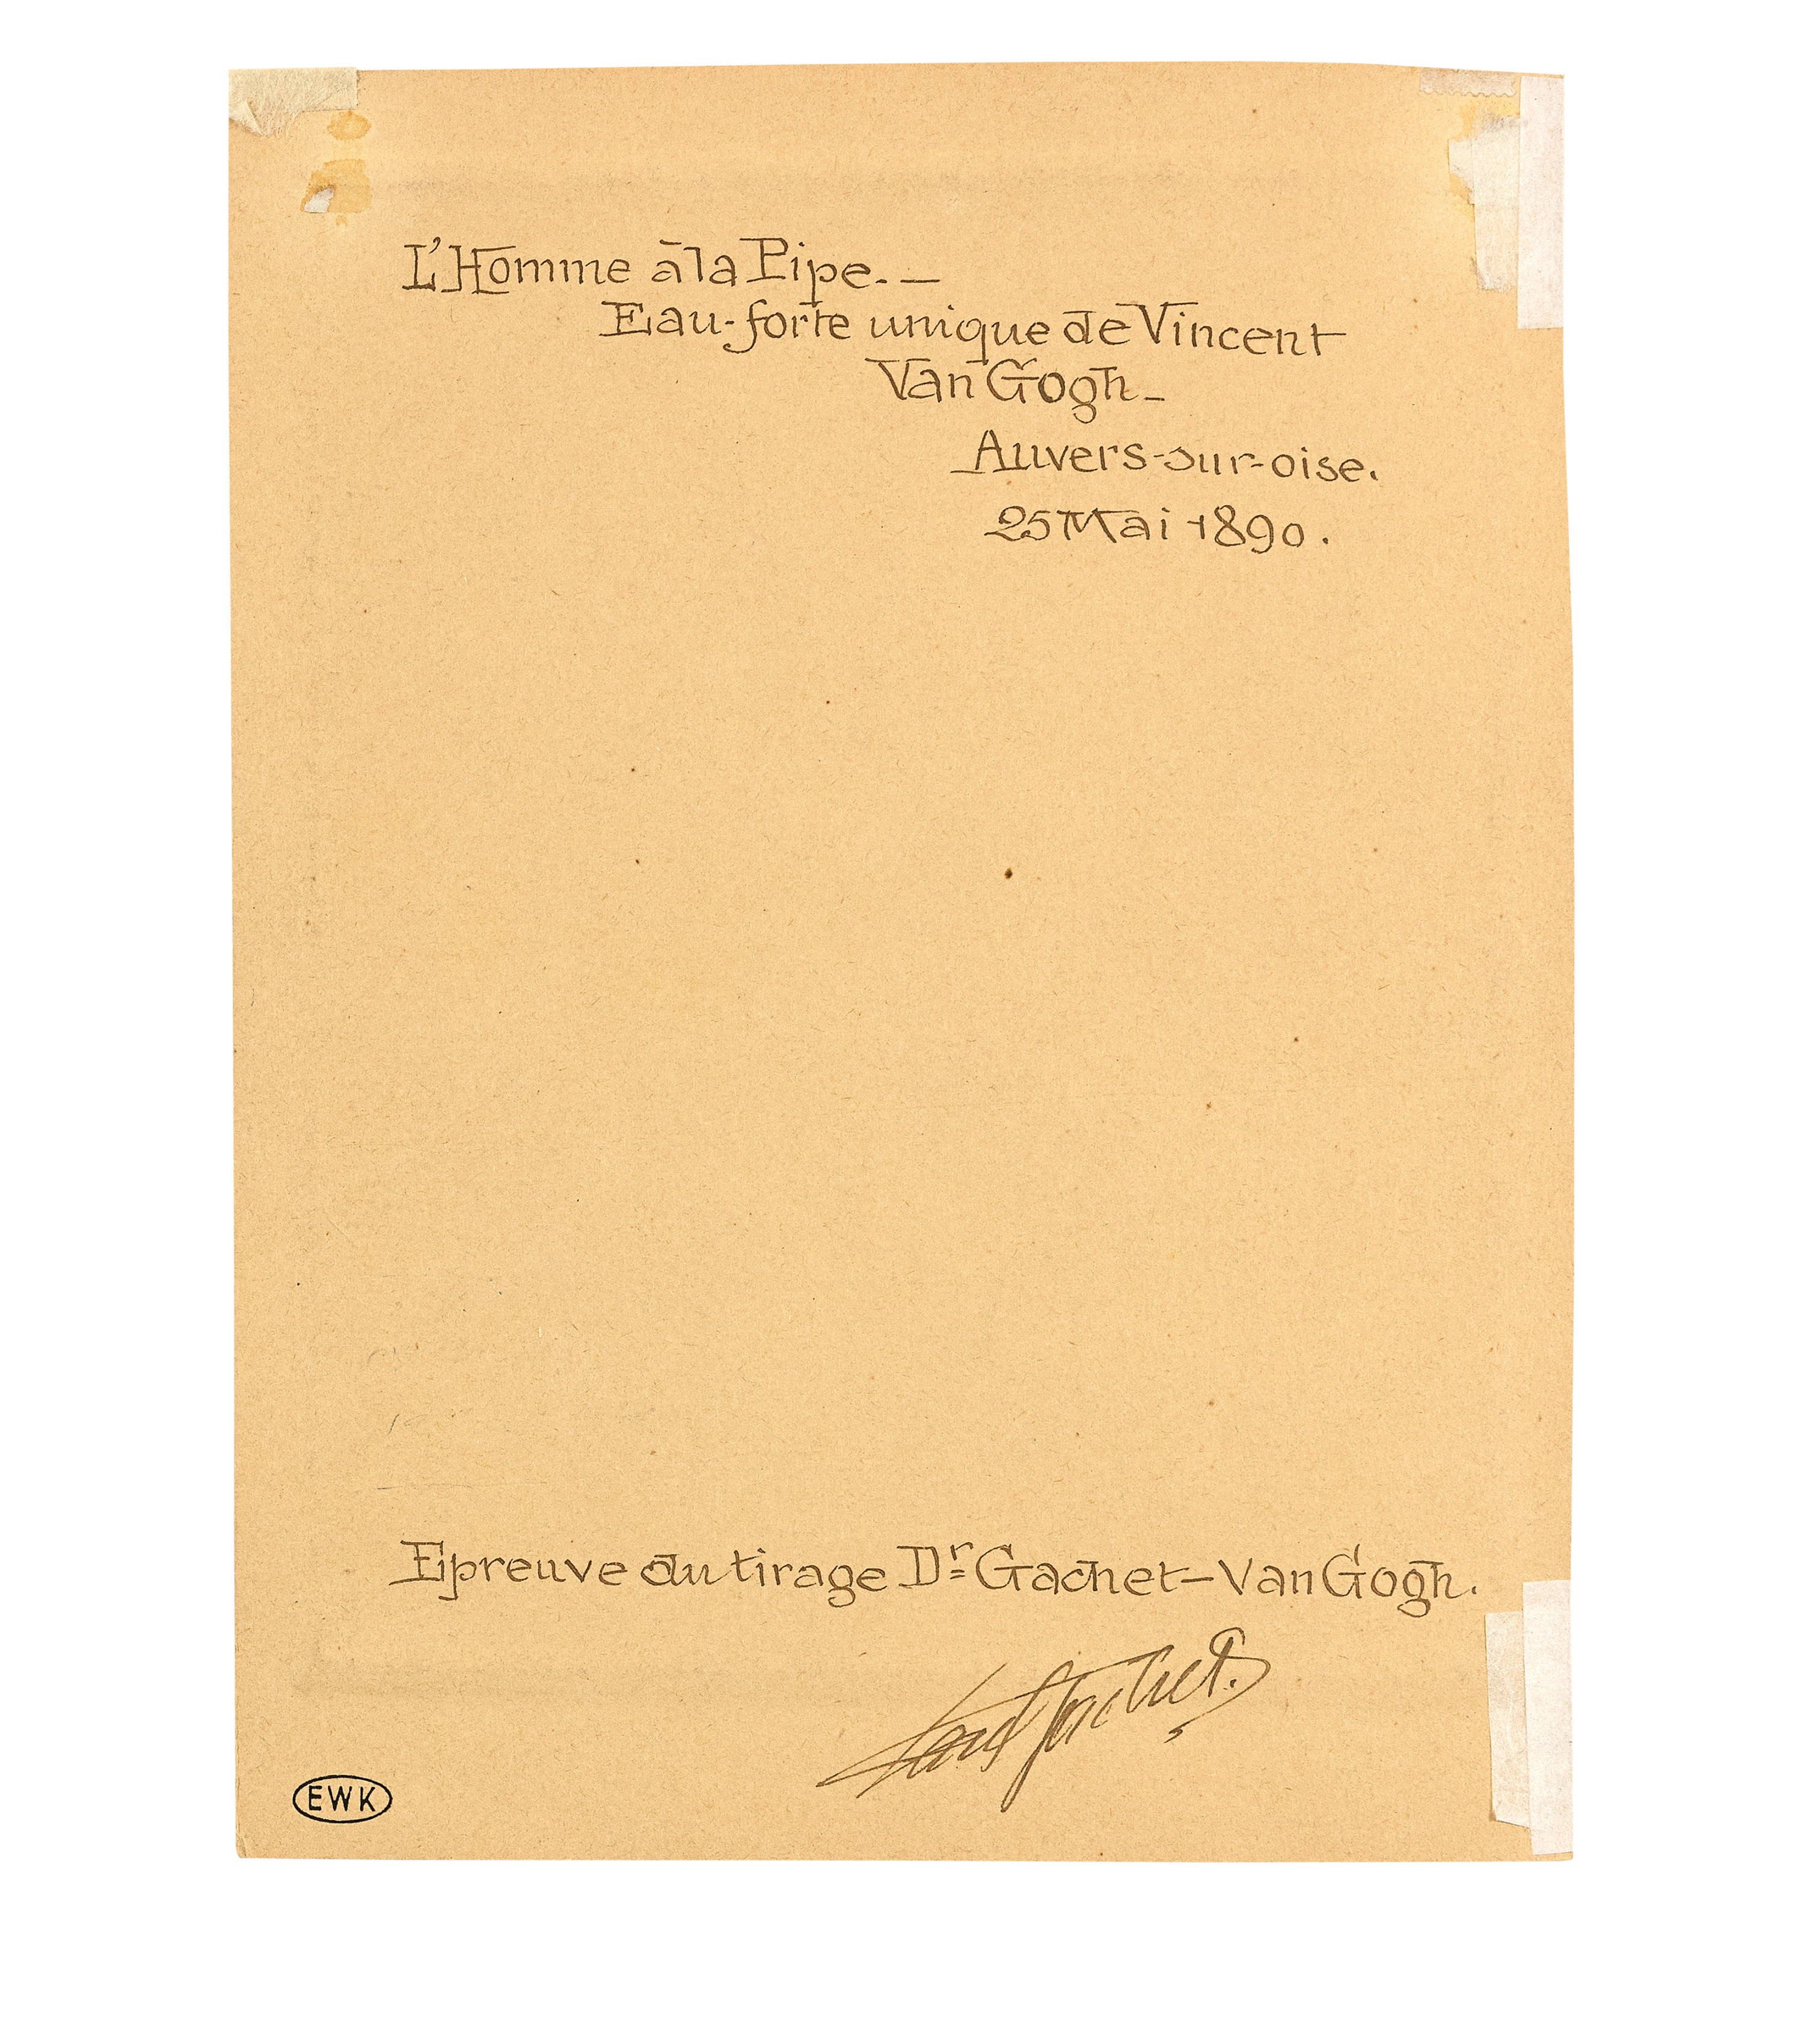 L'Homme à la Pipe. —
Eau-forte unique de Vincent
Van Gogh –
Auvers-sur-oise.
25 Mai 1890.
Epreuve du tirage Dr Gachet – Van Gogh.
Paul Gachet.
EWK